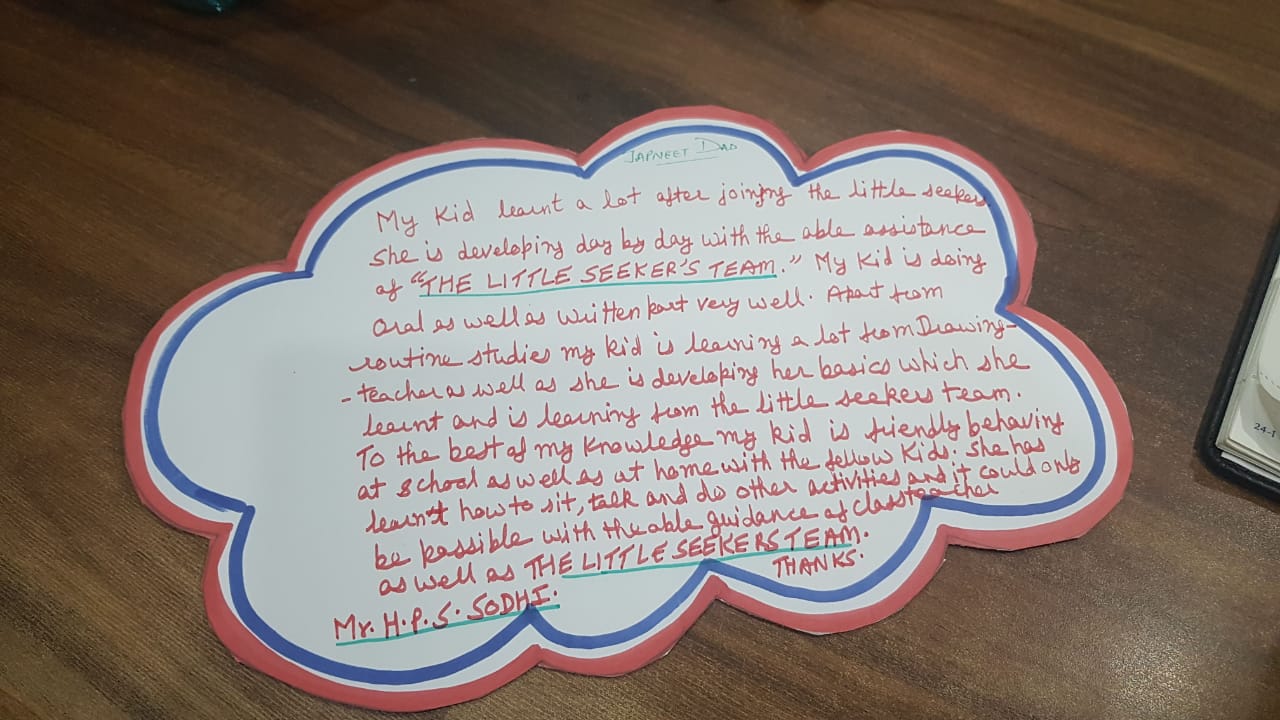 JAPNEET DAD
My Kid learnt a lot after joining the little seekers
She is developing day by day with the able assistance
of "THE LITTLE SEEKER'S TEAM." My Kid is doing
Oral as well as written part very well. Apart from
routine studies my kid is learning a lot from Drawing-
-teacher as well as she is developing her basics which she
learnt and is learning from the little seekers team.
To the best of my knowledge my kid is friendly behaving
at school as well as at home with the fellow Kids. She has
learnt how to sit, talk and do other activities and it could only
be possible with the able guidance of classteacher
as well as THE LITTLE SEEKERS TEAM.
THANKS.
Mr. H.P.S. SODHI.
24-1